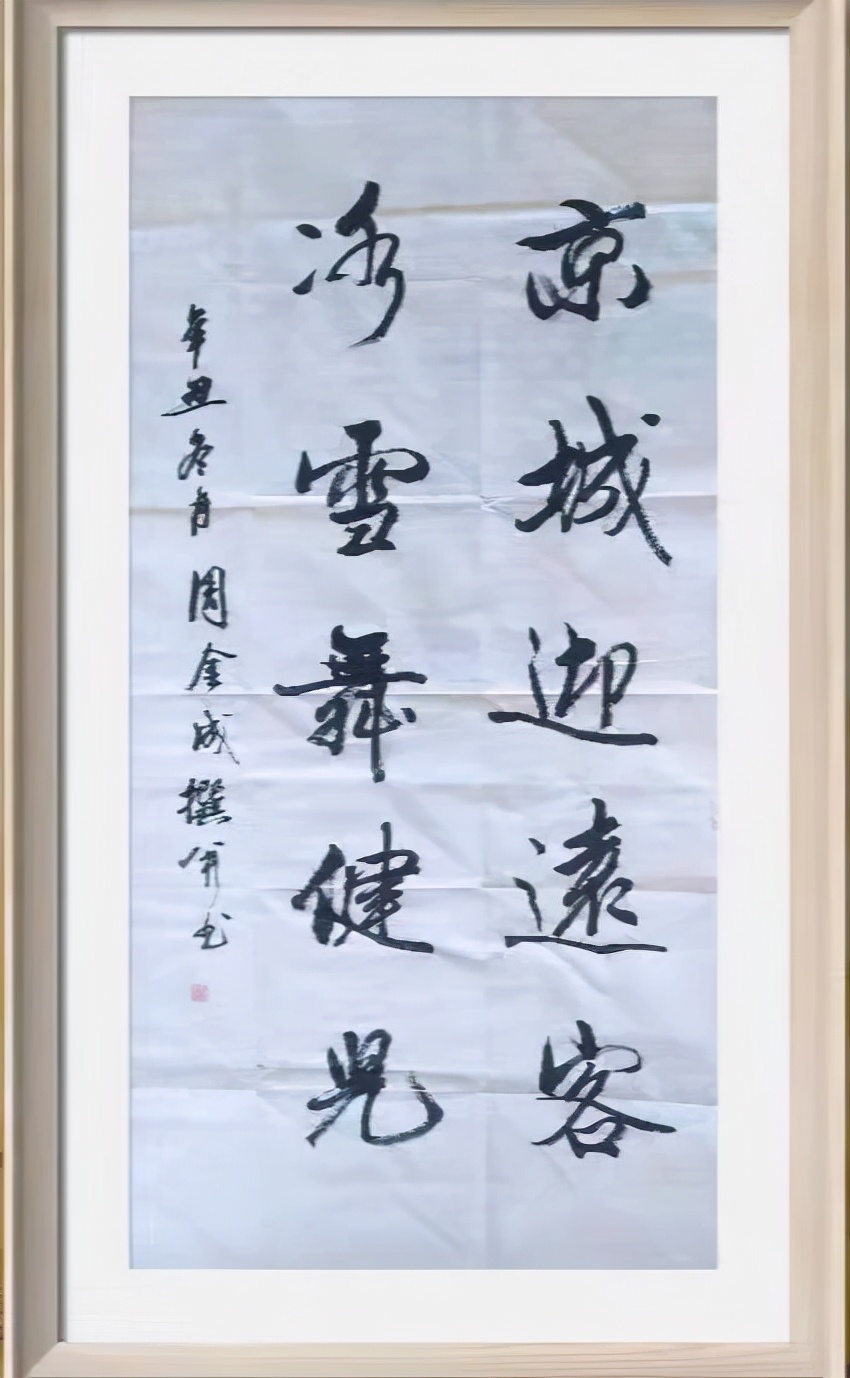 京城迎遠客
冰雪舞健兒
辛丑冬月周金成撰併书